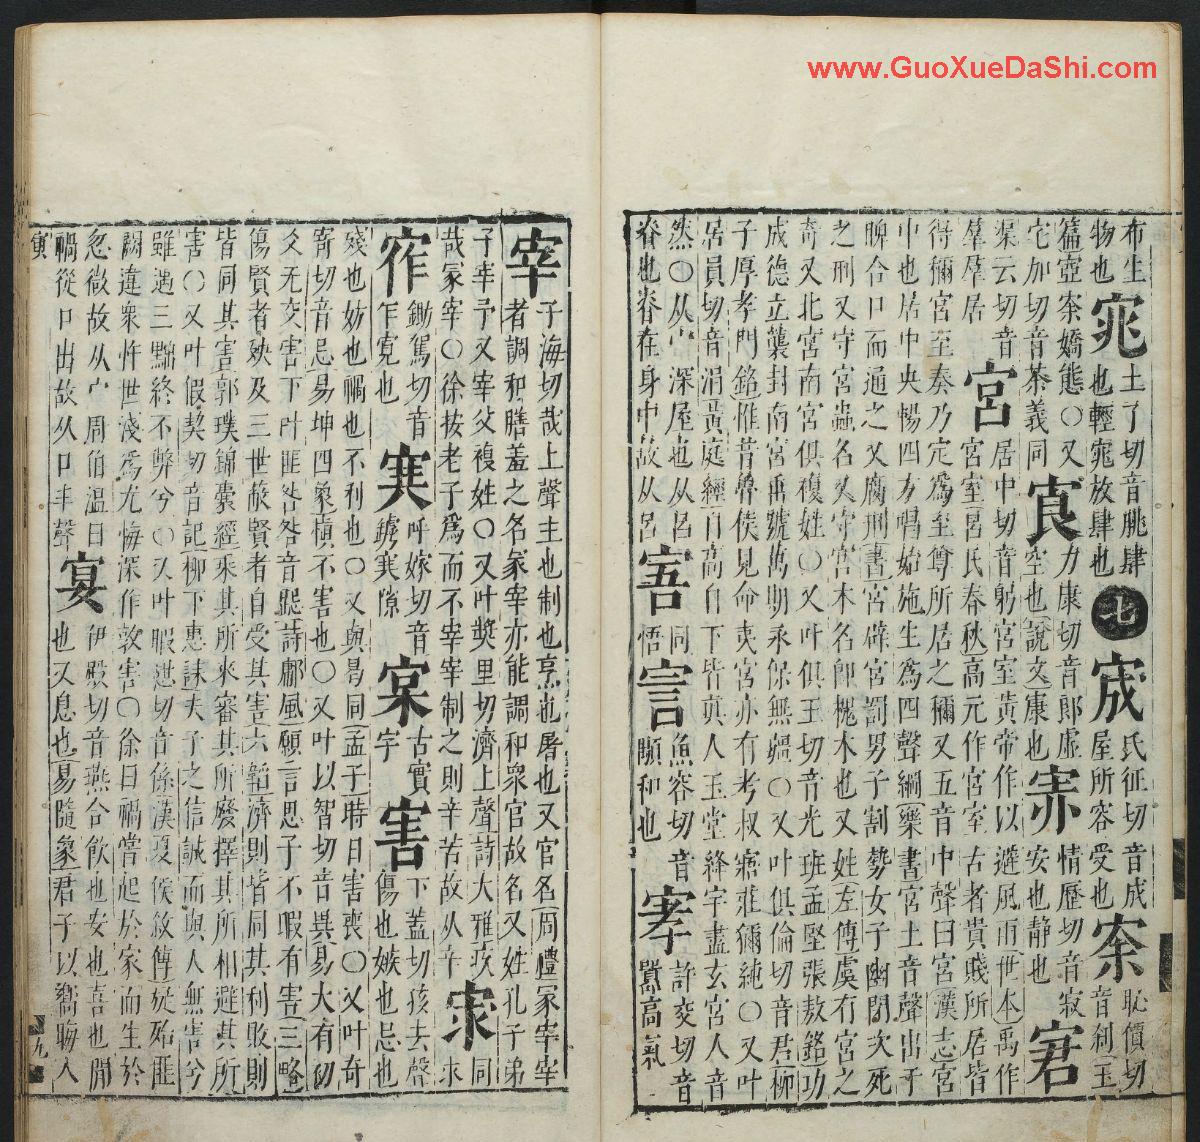 www.GuoXueDaShi.com
布生
物也窕土了切音朓肆也輕窕放肆也七宬氏征切音成屋所容受也㝞恥價切音刹王
篇壺㝞嬌態〇又
它加切音茶義同㝗力康切音郎虛空也說文康也寂情歷切音寂安也靜也宭
渠云切音
羣羣居宮居中切音躬宮室黃帝作以避風雨世本禹作宮室宮氏春秋高元作宮室古者貴賤所居皆
得稱宮至秦乃定爲至尊所居之稱又五音中聲曰宮漢志宮
中也居中央暢四方唱始施生爲四聲綱樂書宮土音聲出于
脾合口而通之又腐刑書宮辟宮罰男子割勢女子幽閉次死
之刑又守宮蟲名又守宮木名卽槐木也又姓左傳虞有宮之
奇又北宮南宮俱複姓〇又叶俱王切音光班孟堅張敖銘功
成德立襲封南宮垂號萬期永保無疆〇又叶俱倫切音君柳
子厚孝門銘惟昔魯侯見命夷宮亦有考叔寤莊稱純〇又叶
居員切音涓黃庭經自高自下皆眞人玉堂絳宇盡玄宮人音
然〇从宀深屋也从呂
脊也脊在身中故从呂害同悟言魚容切音顒和也宯許交切音囂高氣
宰子海切哉上聲主也制也烹也屠也又官名周禮冢宰宰
者調和膳羞之名冢宰亦能調和衆官故名又姓孔子弟
子宰予又宰父複姓〇又叶奬里切濟上聲詩大雅疚
哉冢宰〇徐按老子爲而不宰宰制之則辛苦故从辛宩同
求
窄鋤駕切音乍寬也㝝呼嫁切音罅㝝隙㝓古實字害下蓋切孩去聲傷也嫉也忌也
殘也妨也禍也不利也〇又與曷同孟子時日害喪〇又叶奇
寄切音忌易坤四象愼不害也〇又叶以智切音異易大有初
爻无交害下叶匪咎咎音髸詩鄘風願言思子不暇有害三略
傷賢者殃及三世蔽賢者自受其害六韜濟則皆同其利敗則
皆同其害郭璞錦囊經乘其所來審其所廢擇其所相避其所
害〇又叶假契切音記柳下惠誄夫子之信誠而與人無害兮
雖遇三黜終不弊兮〇又叶暇憇切音係漢夏侯敘傳娫殆匪
闊違衆忤世淺爲尤悔深作敦害〇徐曰禍嘗起於家而生於
忽微故从宀周伯溫曰
禍從口出故从口丰聲宴伊殿切音燕合飮也安也喜也閒
也又息也易隨象君子以嚮晦入
寅
九